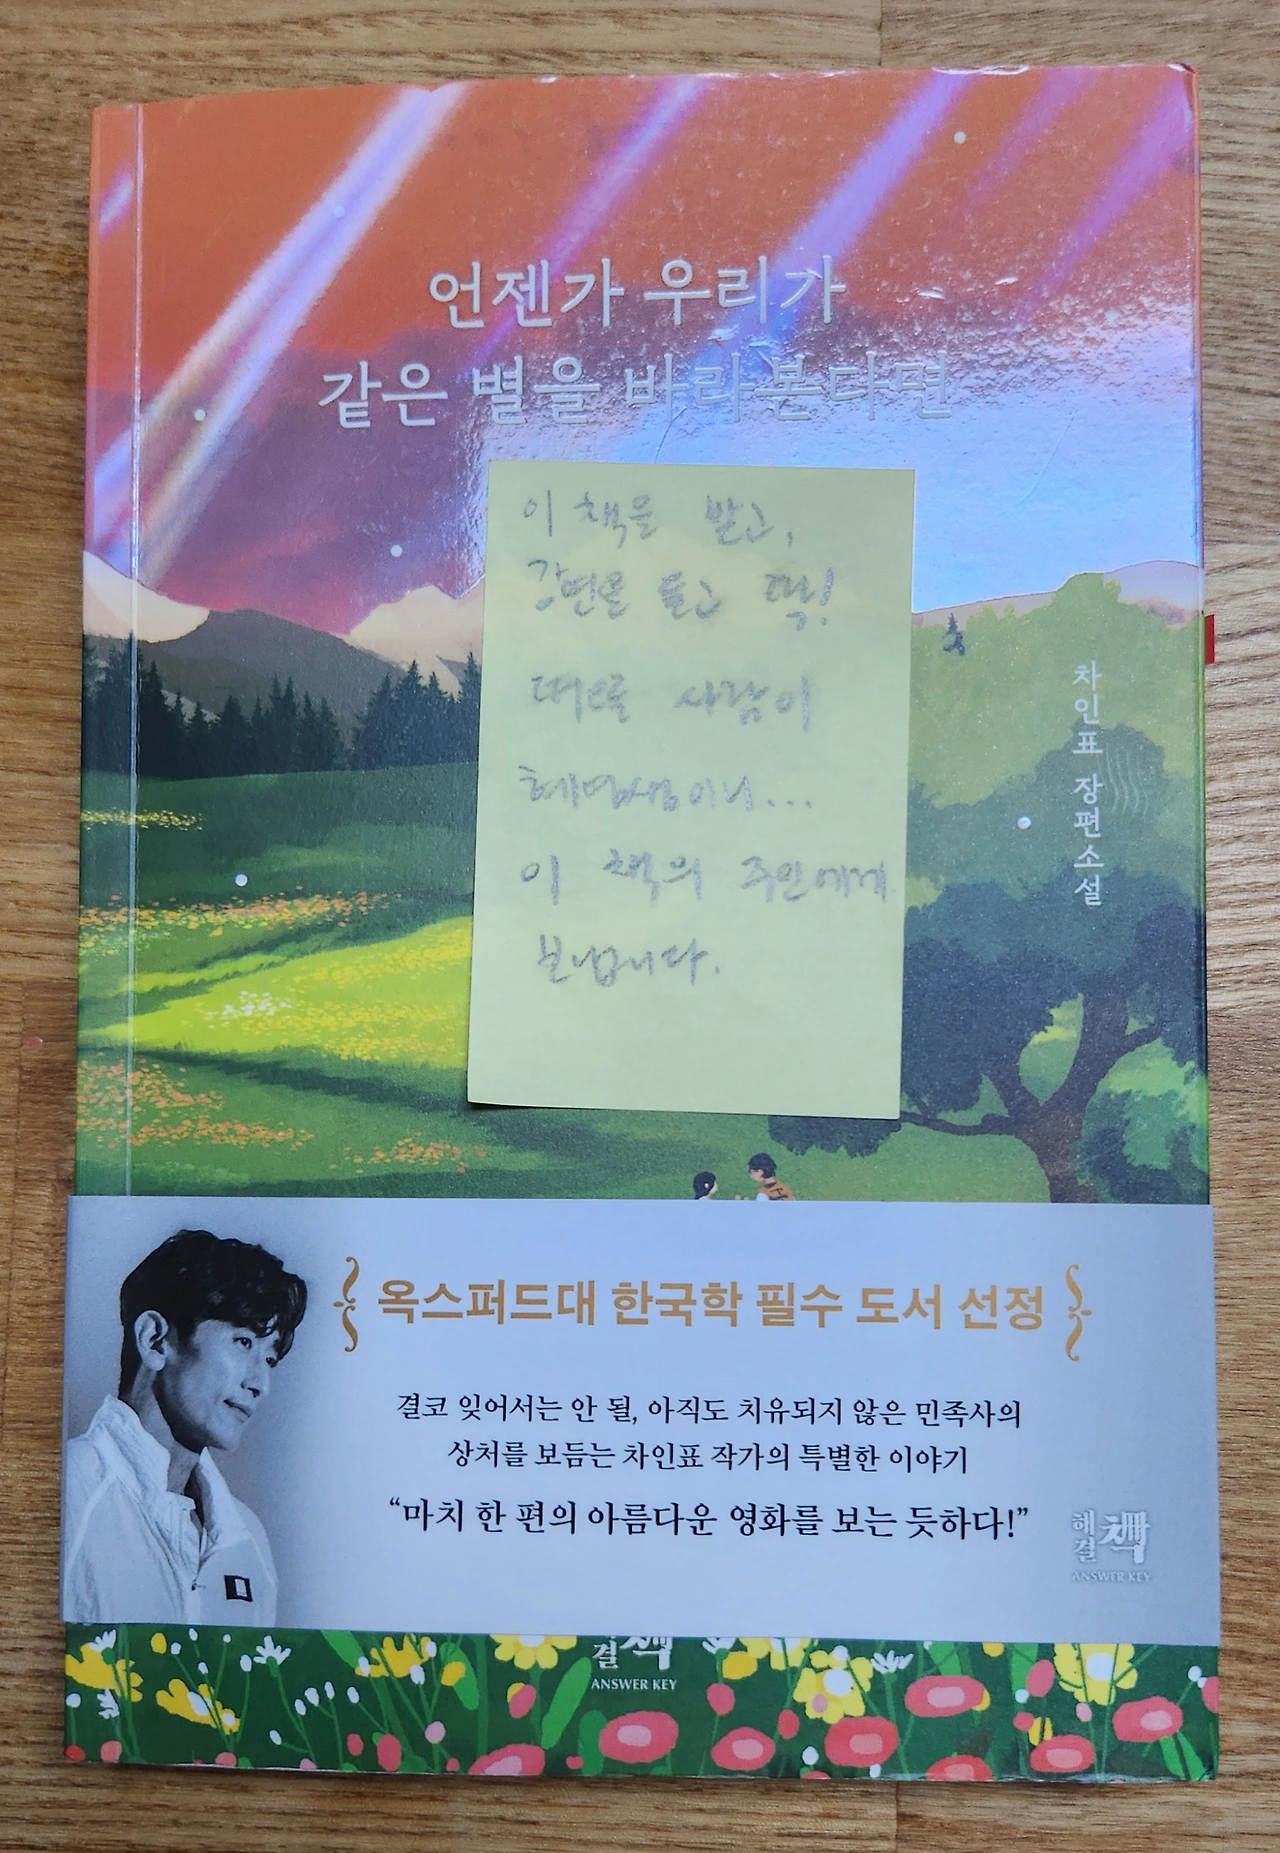 언젠가 우리가
같은 별을 바라본다면
이 책을 받고,
강연을 듣고 딱!
떠오른 사람이
혜영샘이니...
이 책의 주인에게
보냅니다.
차인표 장편소설
옥스퍼드대 한국학 필수 도서 선정
결코 잊어서는 안 될, 아직도 치유되지 않은 민족사의
상처를 보듬는 차인표 작가의 특별한 이야기
“마치 한 편의 아름다운 영화를 보는 듯하다!”
해결책
ANSWER KEY
결책
ANSWER KEY